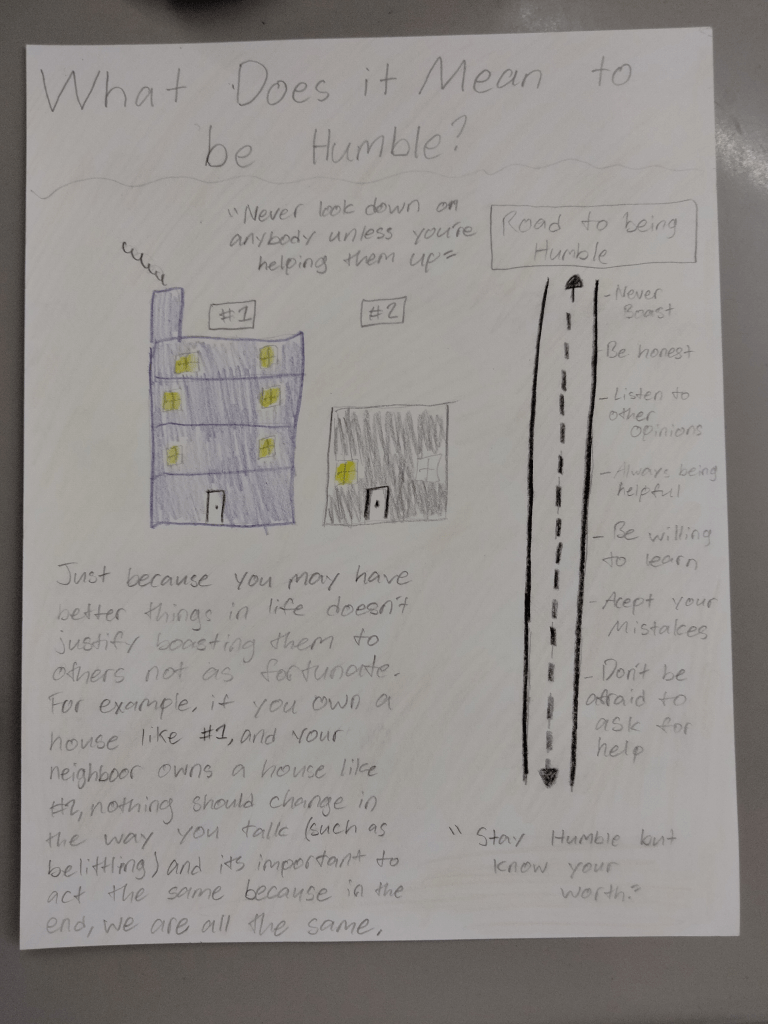 What Does it Mean to
be Humble?
"Never look down on
anybody unless you're
helping them up"
#1
#2
Just because you may have
better things in life doesn't
justify boasting them to
others not as fortunate.
For example, if you own a
house like #1, and your
neighboor owns a house like
#2, nothing should change in
the way you talk (such as
belittling) and its important to
act the same because in the
end, we are all the same.
Road to being
Humble
- Never
Boast
- Be honest
- Listen to
other
opinions
- Always being
helpful
- Be willing
to learn
- Acept your
Mistakes
- Don't be
afraid to
ask for
help
"Stay Humble but
know your
worth."